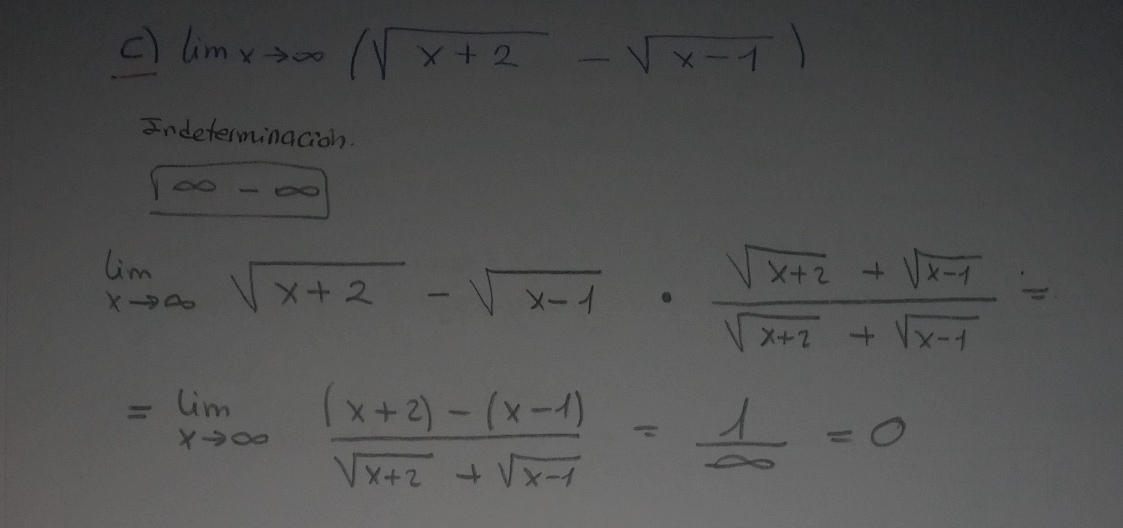 c) lim x→∞ (√x+2 - √x-1)
Indeterminación.
∞ - ∞
lim x→∞ √x+2 - √x-1 · (√x+2 + √x-1)/(√x+2 + √x-1) =
= lim x→∞ ((x+2) - (x-1))/(√x+2 + √x-1) = 1/∞ = 0